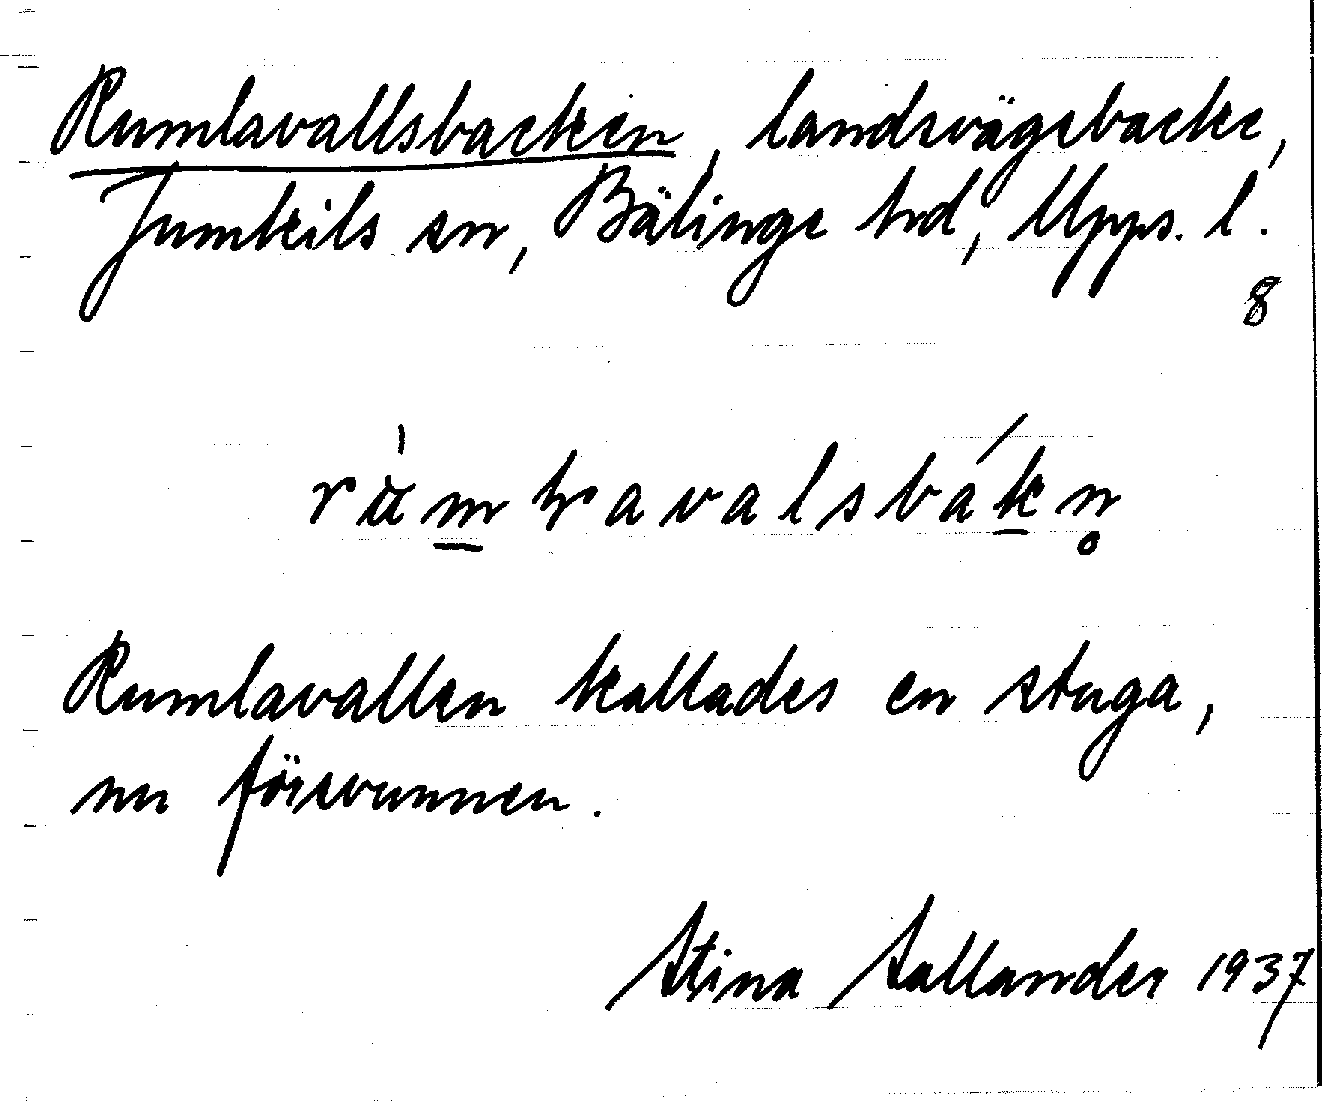 Rumlavallsbacken, landsvägsbacke,
Jumkils sn, Bälinge hd, Upps. l.
8
Rumlavallen kallades en stuga,
nu försvunnen.
Stina Sallander 1937